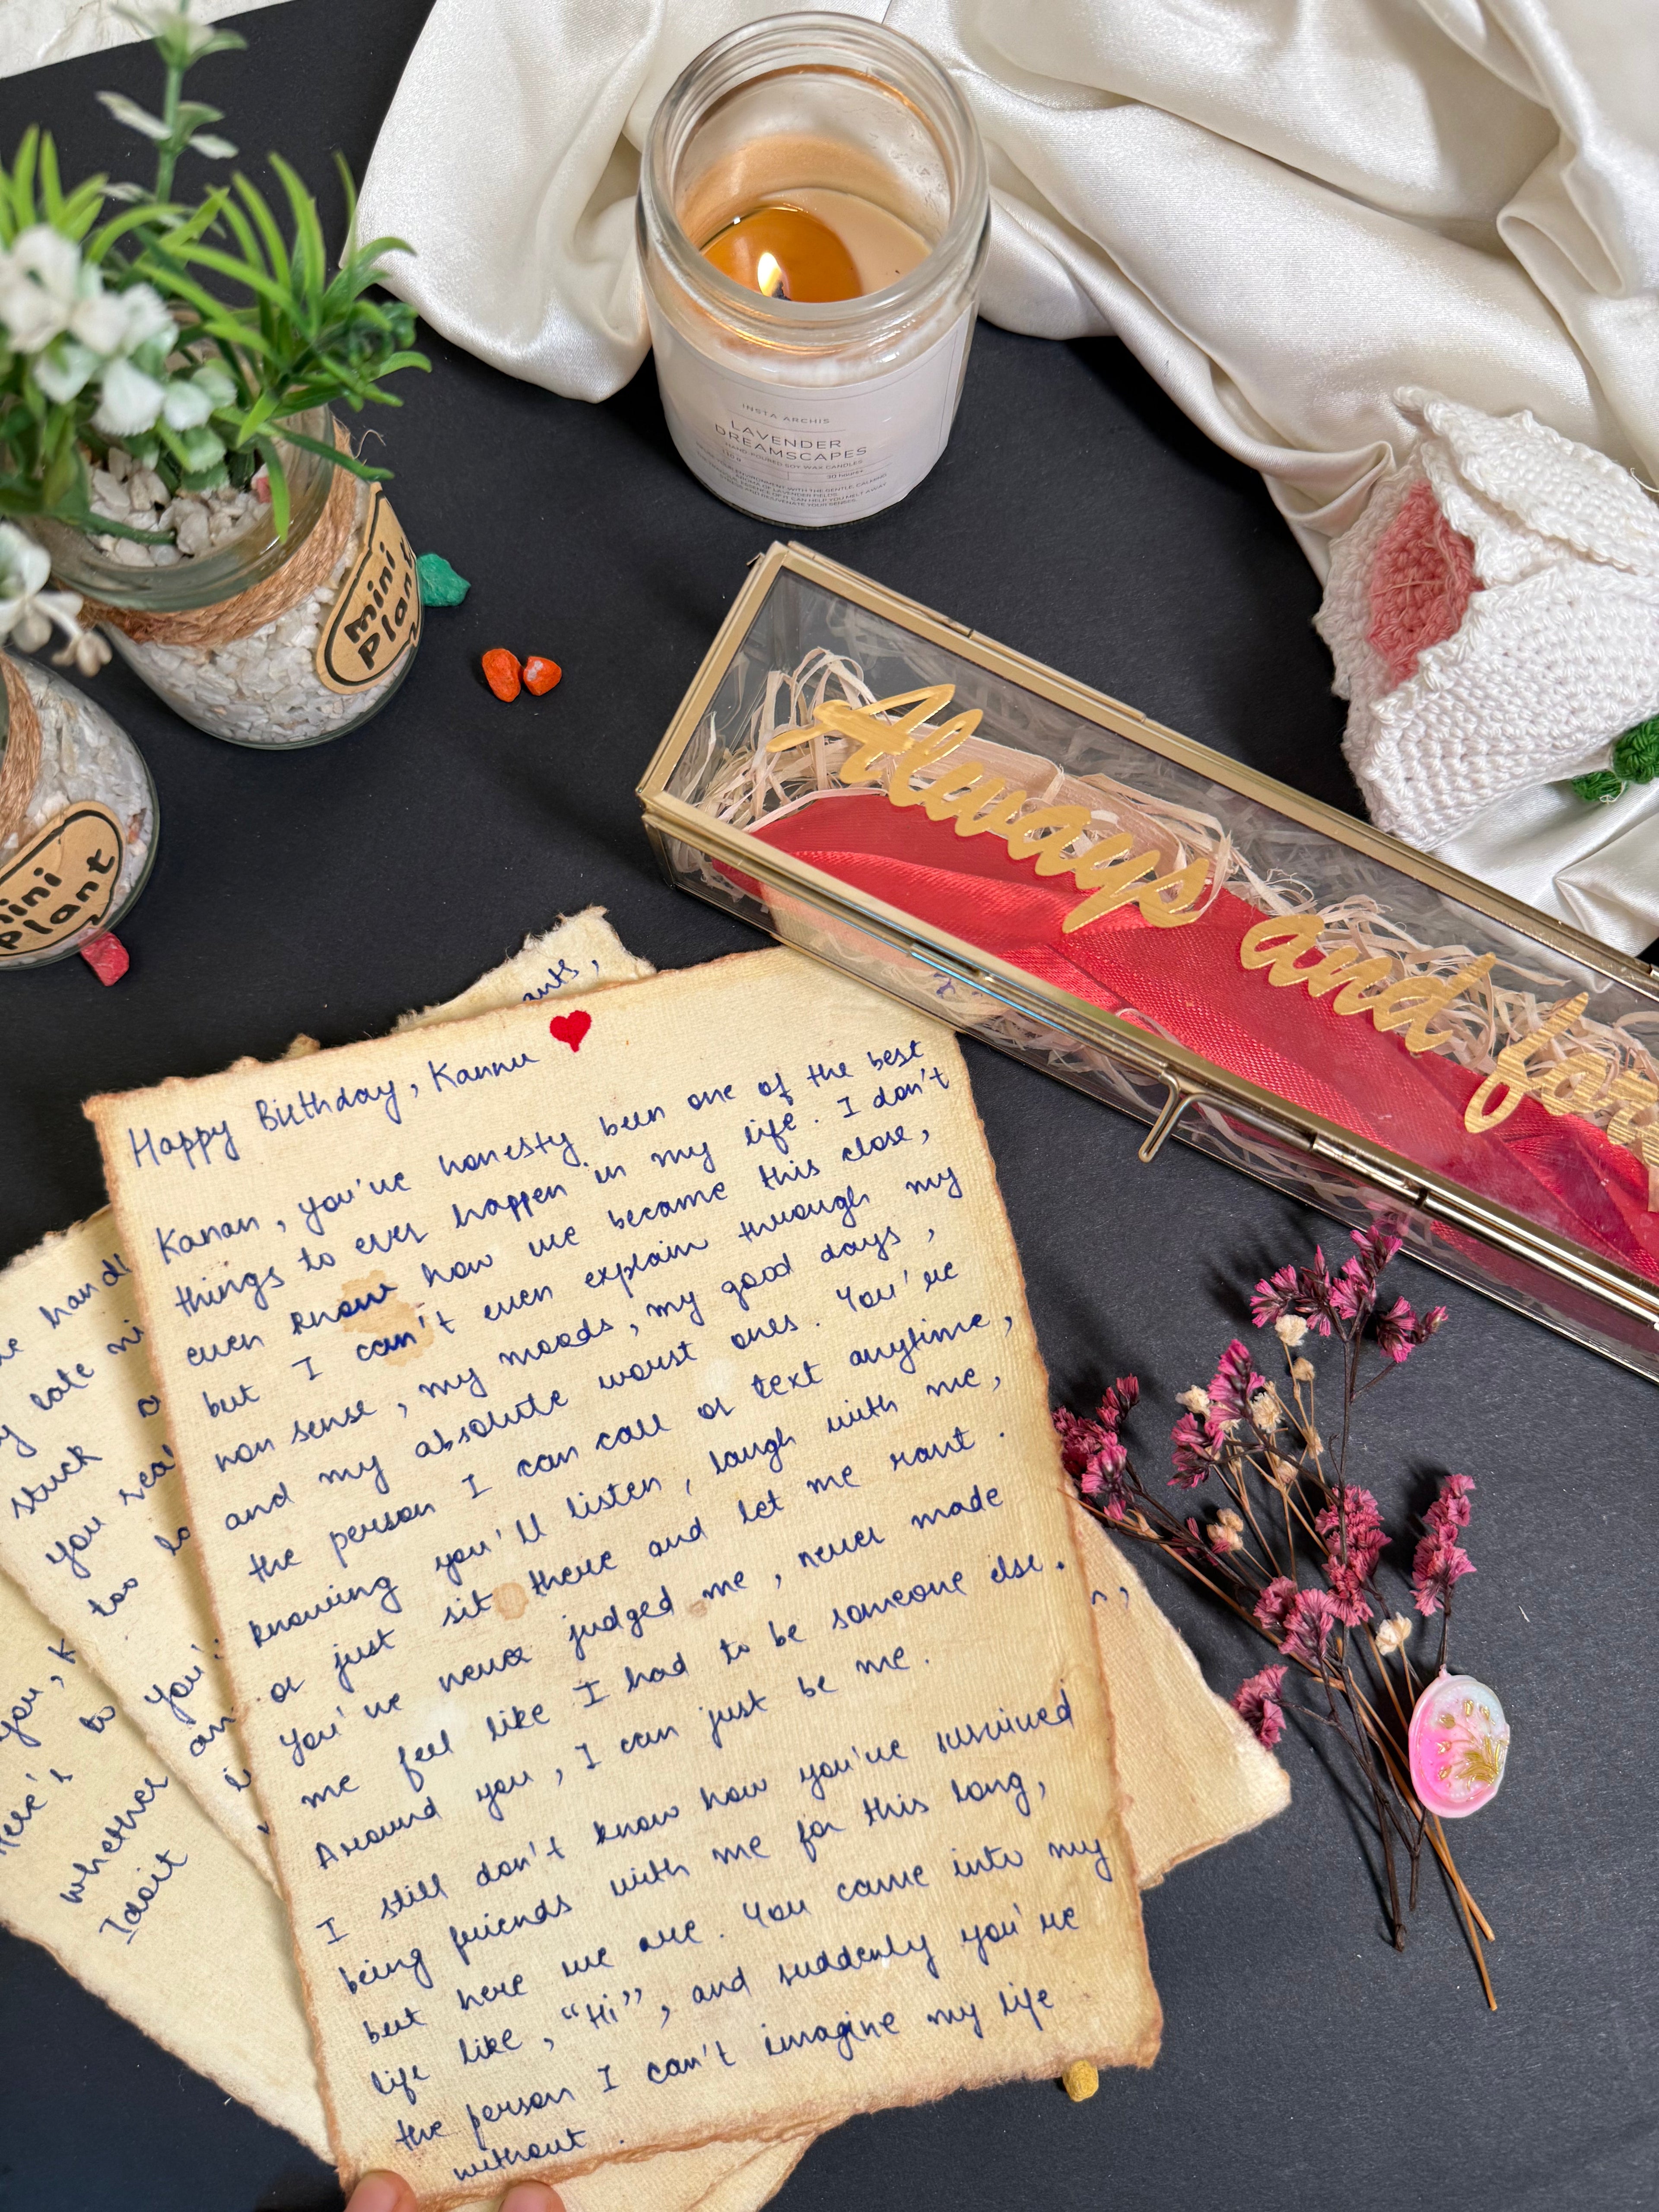 INSTA ARCHIS
LAVENDER
DREAMSCAPES
HAND POURED SOY WAX CANDLES
30 hours
mini
Plant
mini
Plant
Always and for
Happy Birthday, Kannu
Kanan, you've honesty been one of the best
things to ever happen in my life. I don't
even know how we became this close,
but I can't even explain through my
non sense, my moods, my good days,
and my absolute worst ones. You're
the person I can call or text anytime,
knowing you'll listen, laugh with me,
or just sit there and let me rant.
You've never judged me, never made
me feel like I had to be someone else.
Around you, I can just be me.
I still don't know how you've survived
being friends with me for this long,
but here we are. You came into my
life like, "Hi", and suddenly you're
the person I can't imagine my life
without.
ants,
handl
late ni
stuck
you real
too lo
you, K
Here's to you
whether
Idoit